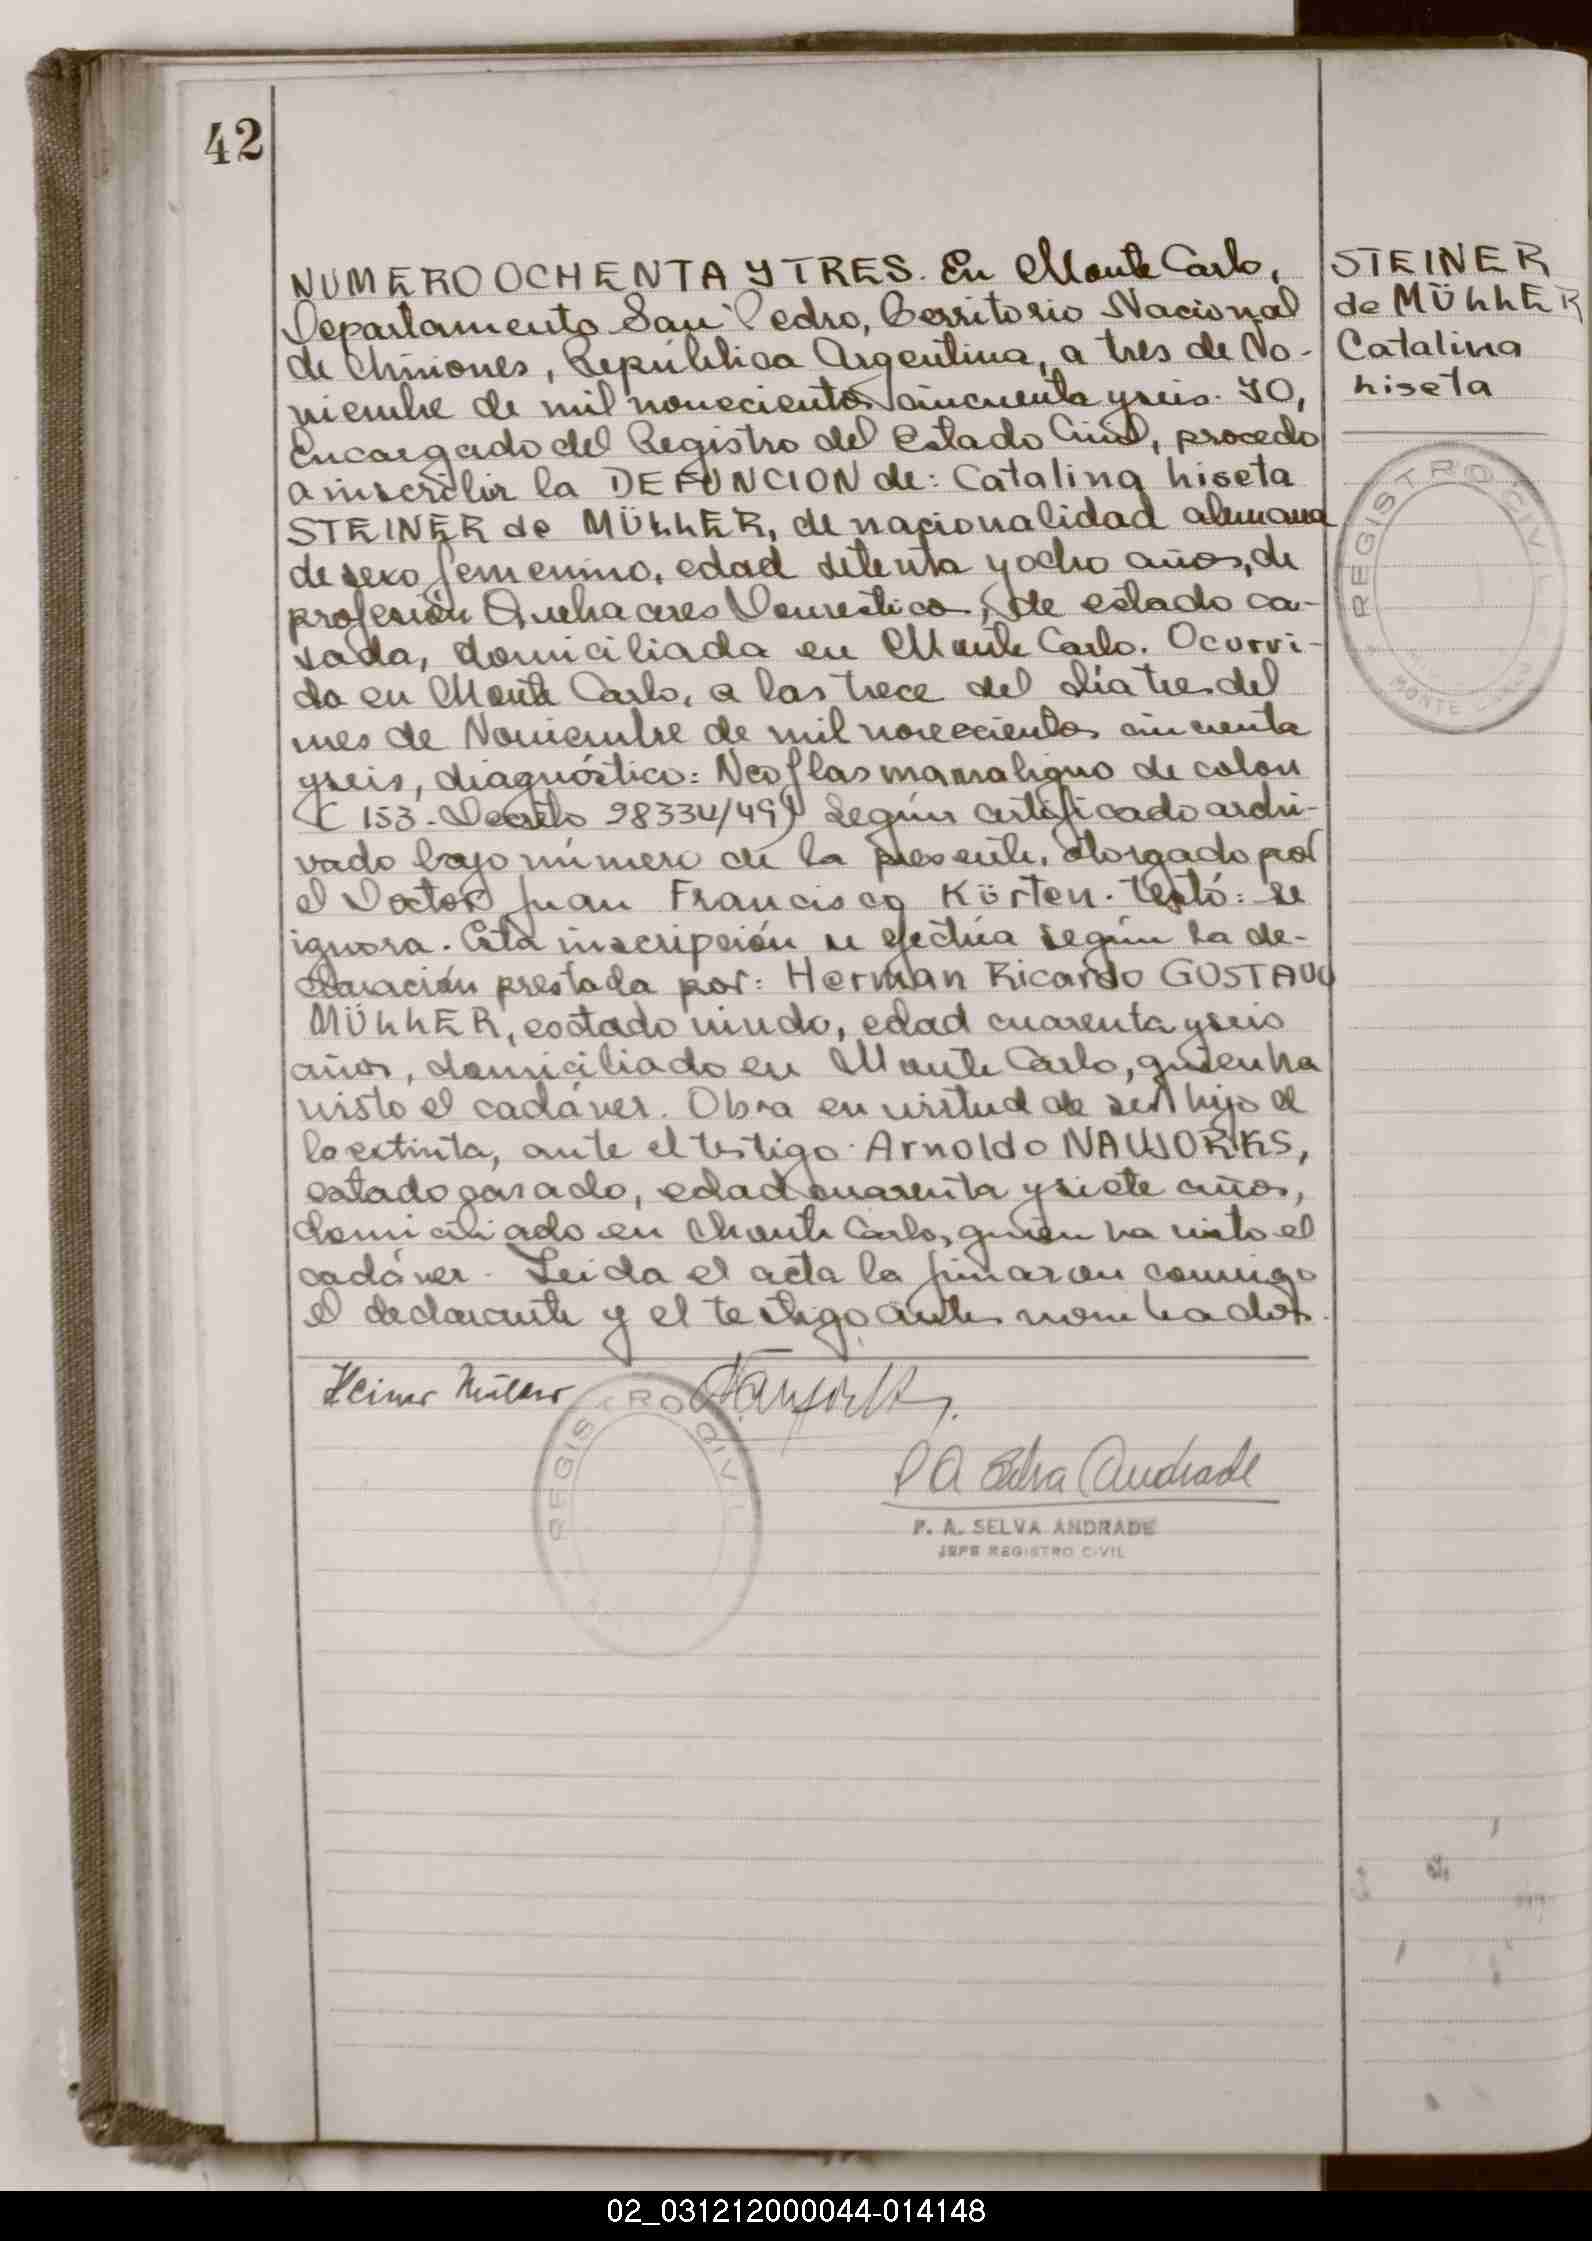 42
NUMERO OCHENTA Y TRES. En Monte Carlo,
Departamento San Pedro, Territorio Nacional
de Misiones, República Argentina, a tres de No-
viembre de mil novecientos cincuenta y seis. YO,
Encargado del Registro del Estado Civil, procedo
a inscribir la DEFUNCION de: Catalina Liseta
STEINER de MÜLLER, de nacionalidad alemana
de sexo femenino, edad setenta y ocho años, de
profesión Quehaceres Domesticos, de estado ca-
sada, domiciliada en Monte Carlo. Ocurri-
da en Monte Carlo, a las trece del día tres del
mes de Noviembre de mil novecientos cincuenta
y seis, diagnóstico: Neoplasma maligno de colon
(153. Decreto 28334/49) Según certificado archi-
vado bajo número de la presente, otorgado por
el Doctor Juan Francisco Körten. Testó: se
ignora. Esta inscripción se efectúa según la de-
claración prestada por: Herman Ricardo GUSTAVO
MÜLLER, estado viudo, edad cuarenta y seis
años, domiciliado en Monte Carlo, quien ha
visto el cadáver. Obra en virtud de ser hijo de
la extinta, ante el testigo Arnoldo NAWORKS,
estado casado, edad cuarenta y siete años,
domiciliado en Monte Carlo, quien ha visto el
cadáver. Leida el acta la firmaron conmigo
el declarante y el testigo antes nombrados.
STEINER
de MÜLLER
Catalina
Liseta
REGISTRO CIVIL
MONTE CARLO
Müller
REGISTRO CIVIL
P A Selva Andrade
P. A. SELVA ANDRADE
JEFE REGISTRO CIVIL
02_031212000044-014148